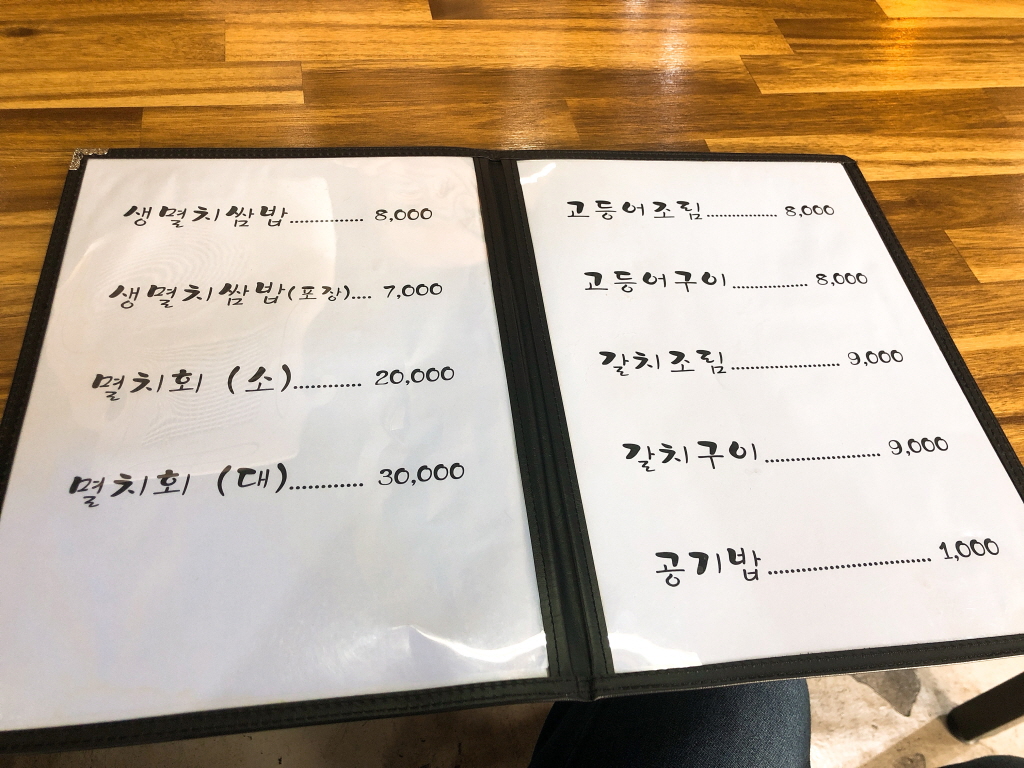 생멸치쌈밥.............. 8,000
생멸치쌈밥(포장).... 7,000
멸치회 (소)............ 20,000
멸치회 (대)............. 30,000
고등어조림................ 8,000
고등어구이................ 8,000
갈치조림...................... 9,000
갈치구이....................... 9,000
공기밥................................ 1,000